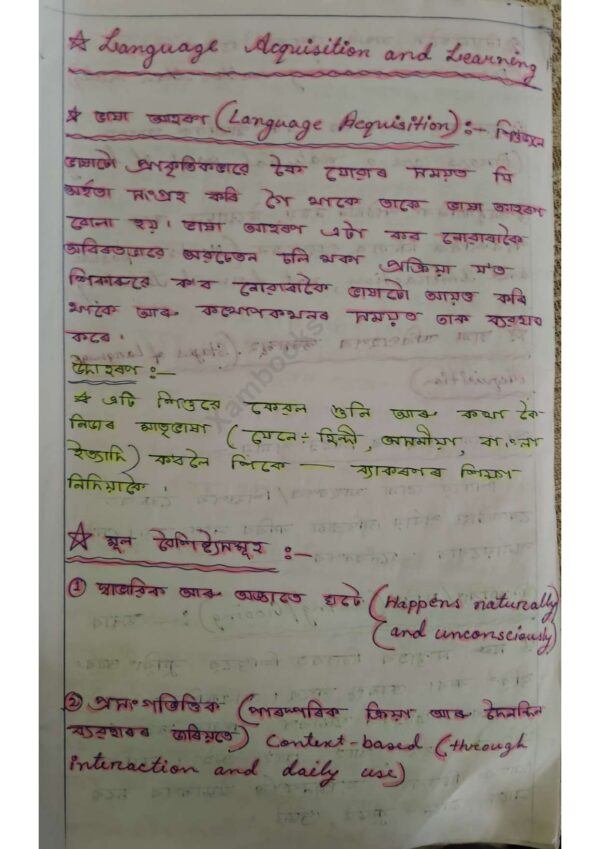 ☆ Language Acquisition and Learning
☆ ভাষা আহৰণ (Language Acquisition) :- শিশুৱে
ভাষাটো প্ৰাকৃতিকভাৱে কৈ যোৱাৰ সময়ত যি
অৰ্হতা সংগ্ৰহ কৰি গৈ থাকে তাকে ভাষা আহৰণ
বোলা হয়। ভাষা আহৰণ এটা কব নোৱাৰাকৈ
অবিৰতভাৱে অৱচেতন চলি থকা প্ৰক্ৰিয়া য'ত
শিকাৰুৱে কব নোৱাৰাকৈ ভাষাটো আয়ত্ত কৰি
থাকে আৰু কথোপকথনৰ সময়ত তাক ব্যৱহাৰ
কৰে।
উদাহৰণ :—
এটি শিশুৱে কেৱল শুনি আৰু কথা কৈ
নিজৰ মাতৃভাষা (যেনে:- হিন্দী, অসমীয়া, বাংলা
ইত্যাদি) কবলৈ শিকে — ব্যাকৰণৰ শিক্ষা
নিদিয়াকৈ।
☆ মূল বৈশিষ্ট্যসমূহ :—
① স্বাভাৱিক আৰু অজ্ঞাতে ঘটে (Happens naturally
(and unconsciously)
② প্ৰসংগভিত্তিক (পাৰস্পৰিক ক্ৰিয়া আৰু দৈনন্দিন
ব্যৱহাৰৰ জৰিয়তে) Context-based (through
interaction and daily use)
Xambooks